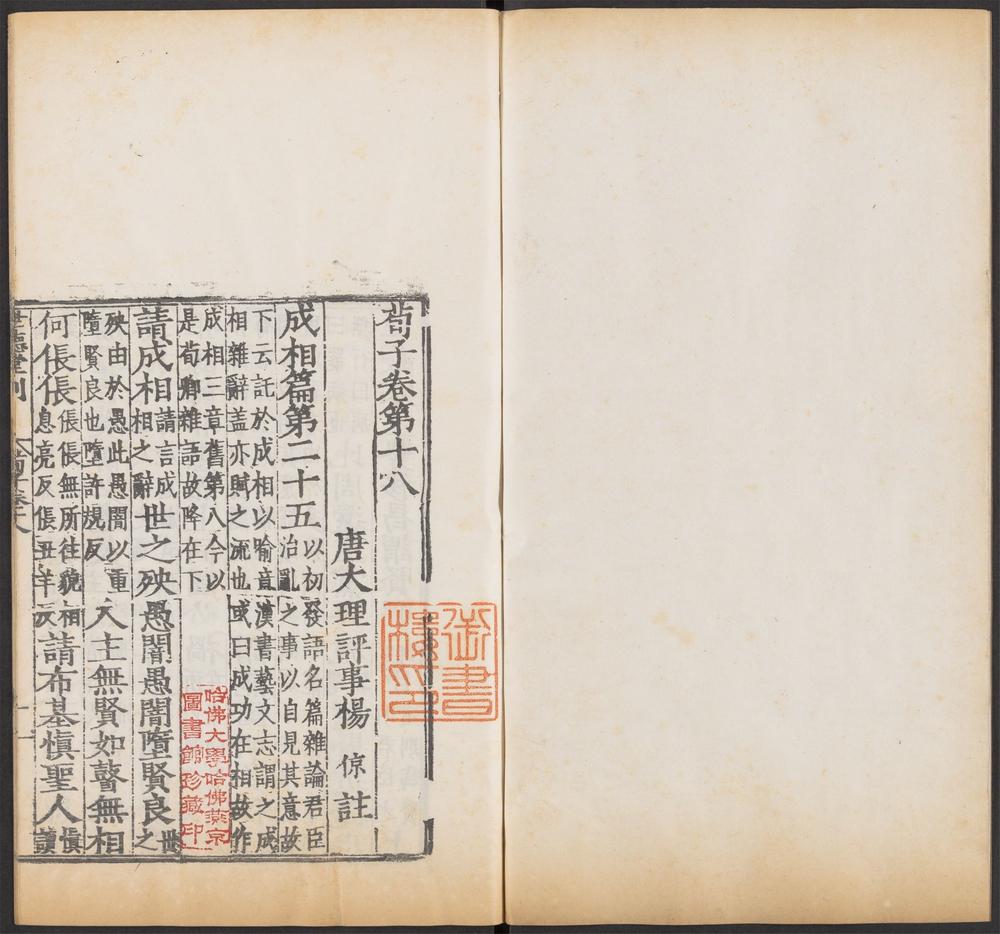 荀子卷第十八
唐大理評事楊 倞 註
成相篇第二十五以初發語名篇雜論君臣
治亂之事以自見其意故
下云託於成相以喻意漢書藝文志謂之成
相雜辭盖亦賦之流也或曰成功在相故作
成相三章舊第八今以
是荀卿雜語故降在下
請成相請言成相之辭世之殃愚闇愚闇墮賢良世之
殃由於愚此愚闇以重
墮賢良也墮許規反人主無賢如瞽無相
何倀倀倀倀無所往貌相息亮反倀丑羊反請布基慎聖人慎讀
世德堂刊 荀子卷十八 一
御書
哈佛大學哈佛燕京
圖書館珍藏印